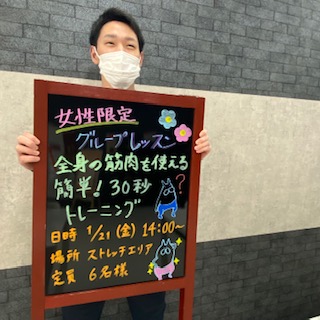 女性限定
グループレッスン
全身の筋肉を使える
簡単！30秒
トレーニング
日時 1/21(金) 14:00〜
場所 ストレッチエリア
定員 6名様
?